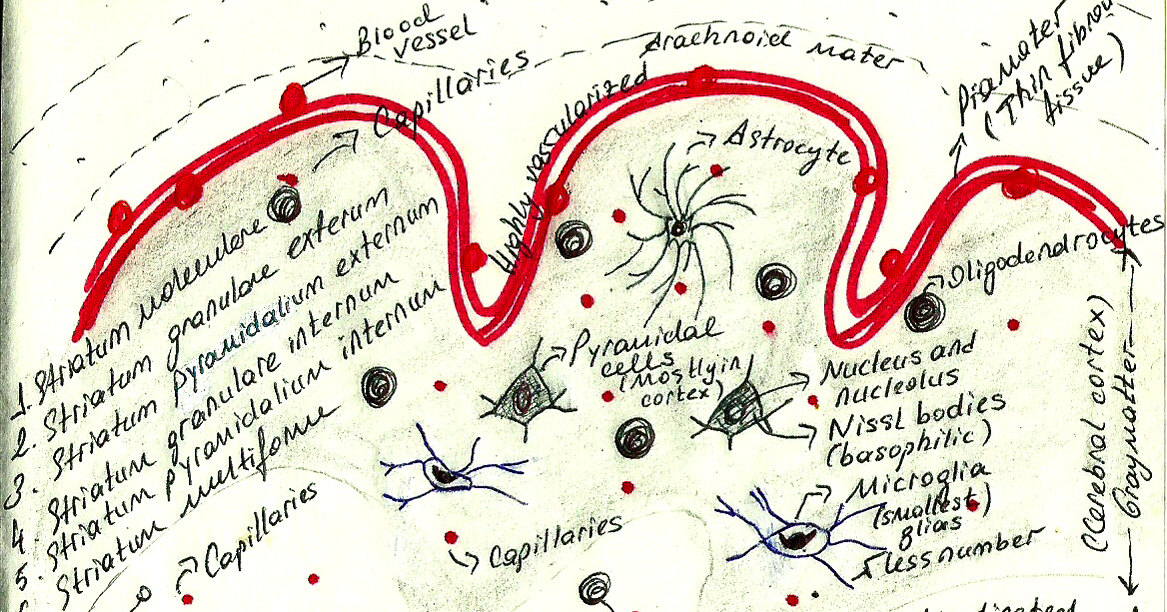 Blood
vessel
Capillaries
Arachnoid mater
Piamater
(Thin fibrou
tissue)
Highly vascularized
Astrocyte
1. Striatum moleculere
2. Striatum granulare exterum
3. Striatum pyramidalium externum
4. Striatum granulare internum
5. Striatum pyramidalium internum
6. Striatum multiforme
Oligodendrocytes
Pyramidal
cells
(mostly in
cortex)
Nucleus and
nucleolus
Nissl bodies
(basophilic)
Microglia
(smallest)
glias
less number
Capillaries
Capillaries
(Cerebral cortex)
Graymatter